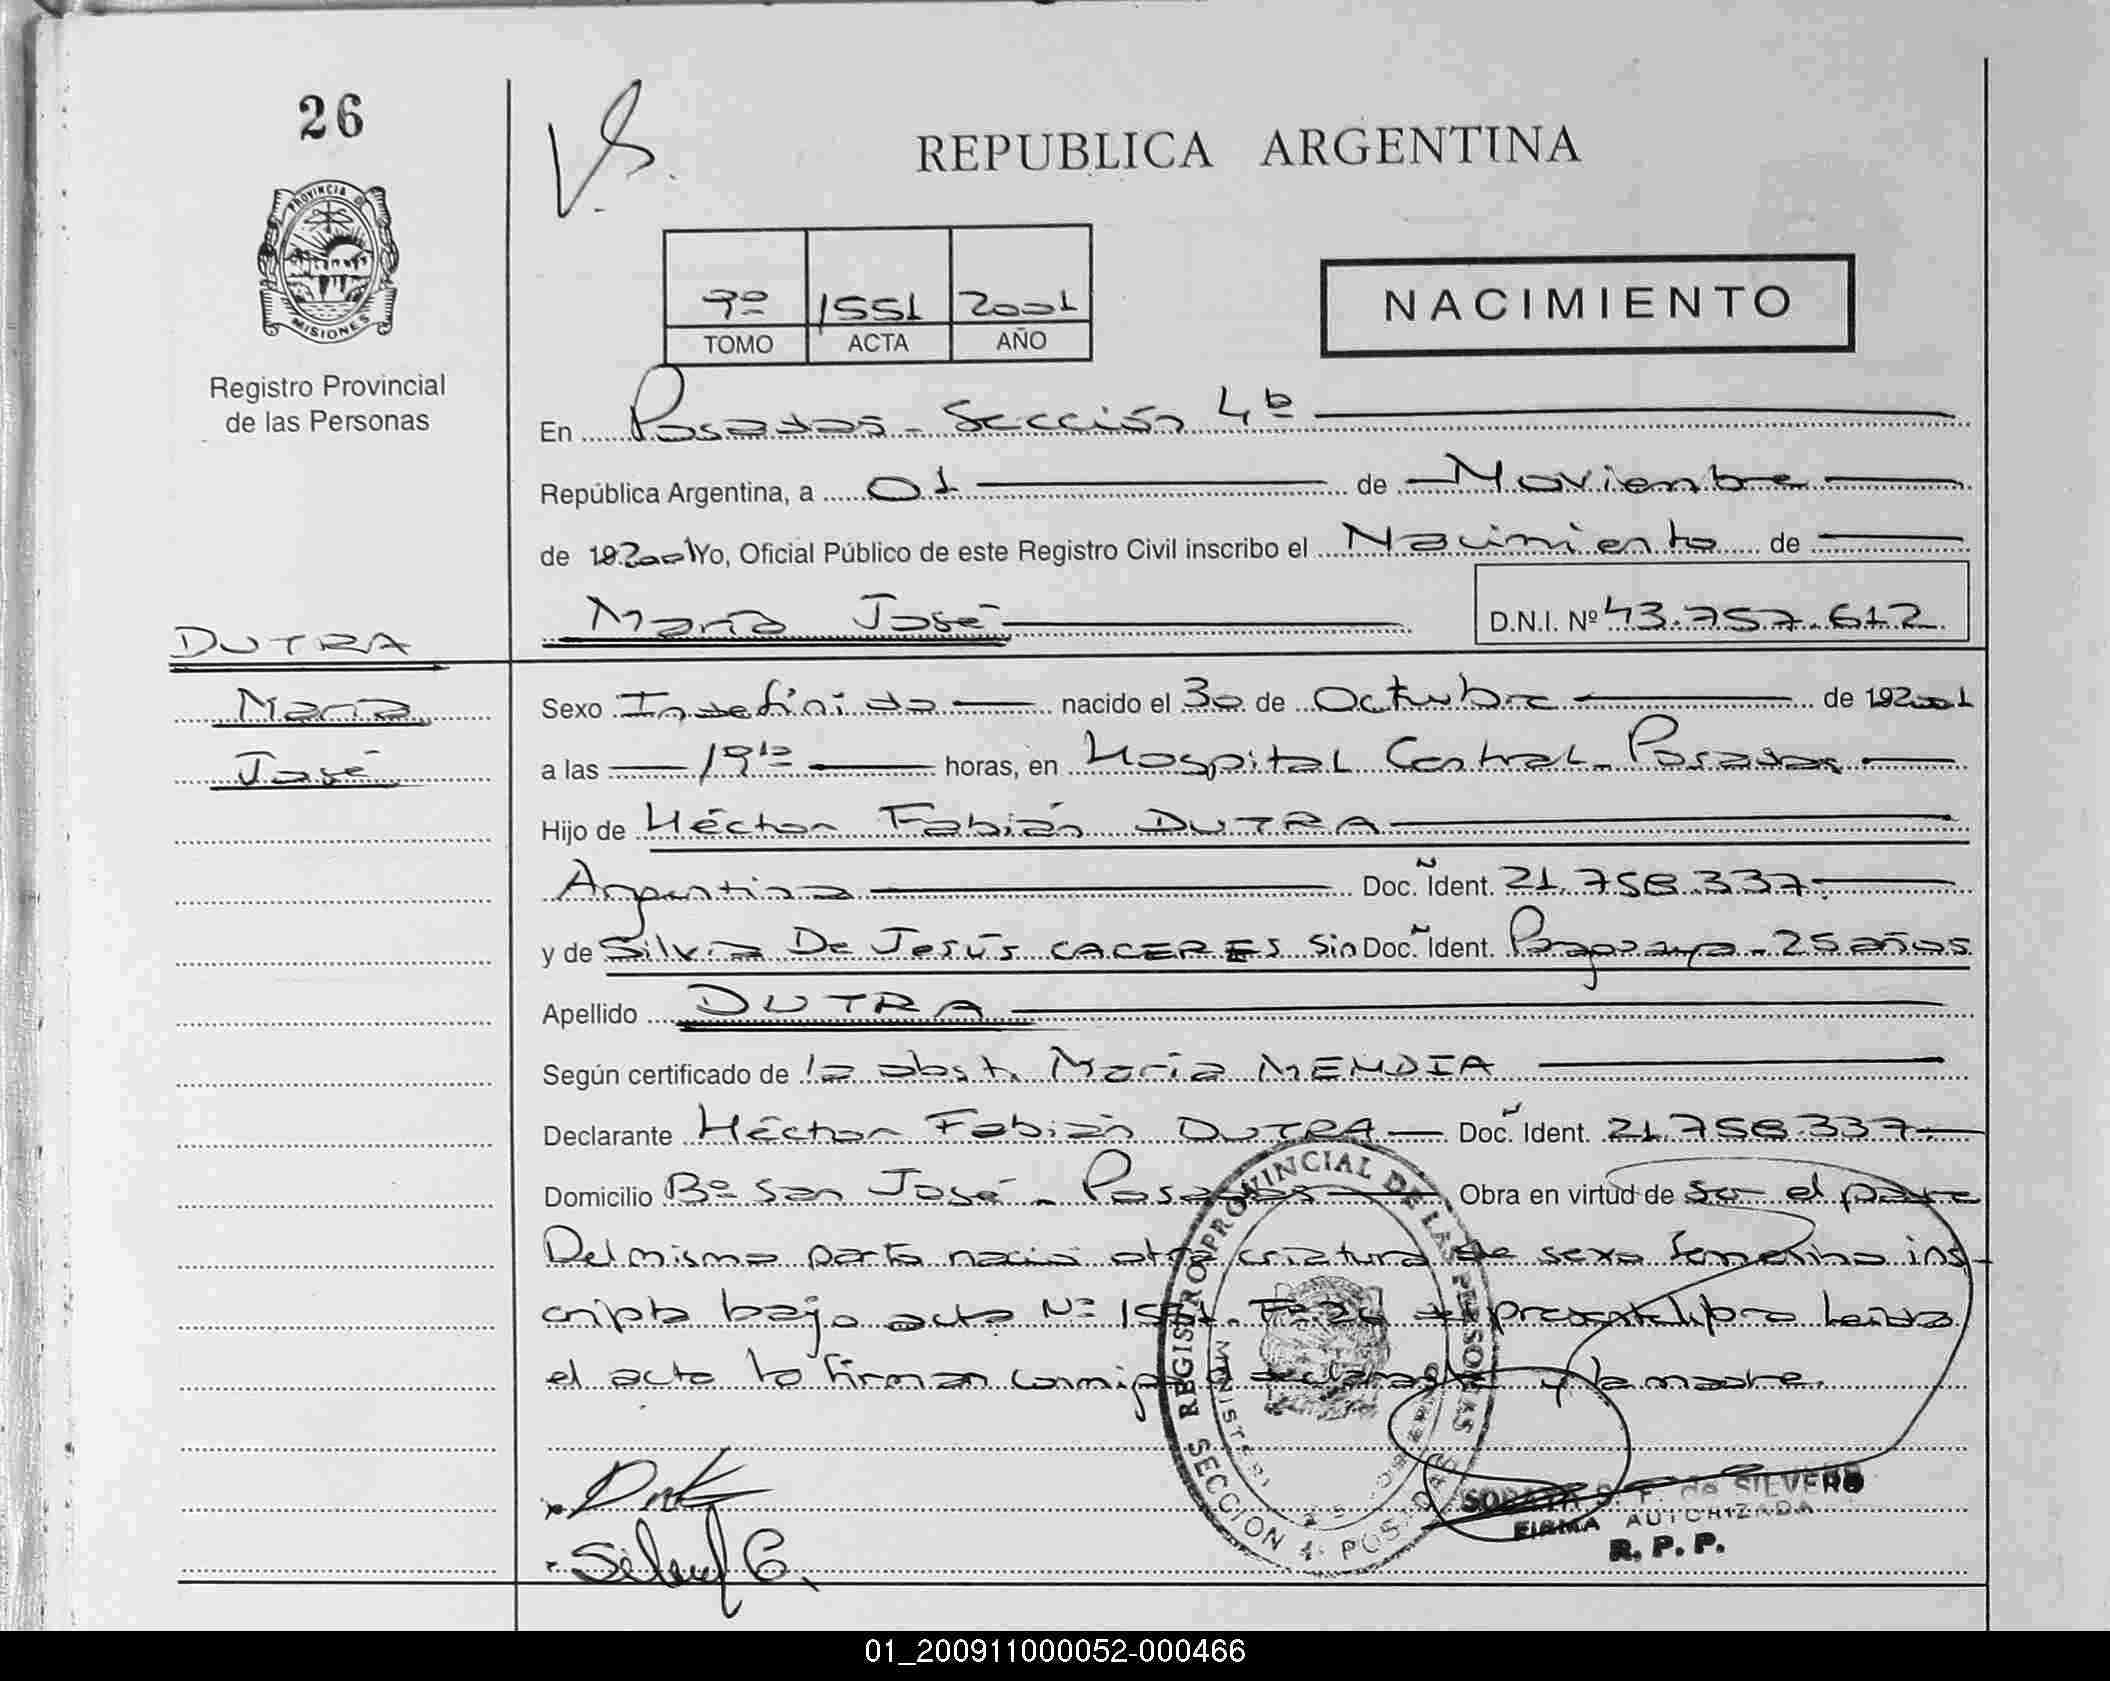 26
PROVINCIA DE
MISIONES
Registro Provincial
de las Personas
REPUBLICA ARGENTINA
9º 1551 2001
TOMO ACTA AÑO
NACIMIENTO
En Posadas - Sección 4ª
República Argentina, a 01 de Noviembre
de 192001 Yo, Oficial Público de este Registro Civil inscribo el Nacimiento de
María José D.N.I. Nº 43.757.612
DUTRA
María
José
Sexo Indefinido nacido el 30 de Octubre de 192001
a las 19 horas, en Hospital Central - Posadas
Hijo de Héctor Fabián DUTRA
Argentino Doc. Ident. 21.758.337
y de Silvia De Jesús CACERES Sin Doc. Ident. Paraguaya - 25 años
Apellido DUTRA
Según certificado de la obst. María MENDIA
Declarante Héctor Fabián DUTRA Doc. Ident. 21.758.337
Domicilio Bº San José - Posadas Obra en virtud de ser el padre
Del mismo parto nació otra criatura de sexo femenino ins-
cripta bajo acta Nº presente libro Leída
el acta la firman conmigo el declarante y la madre.
REGISTRO PROVINCIAL DE LAS PERSONAS
SECCION 4 POSADAS
S. F. de SILVERO
FIRMA AUTORIZADA
R. P. P.
01_200911000052-000466